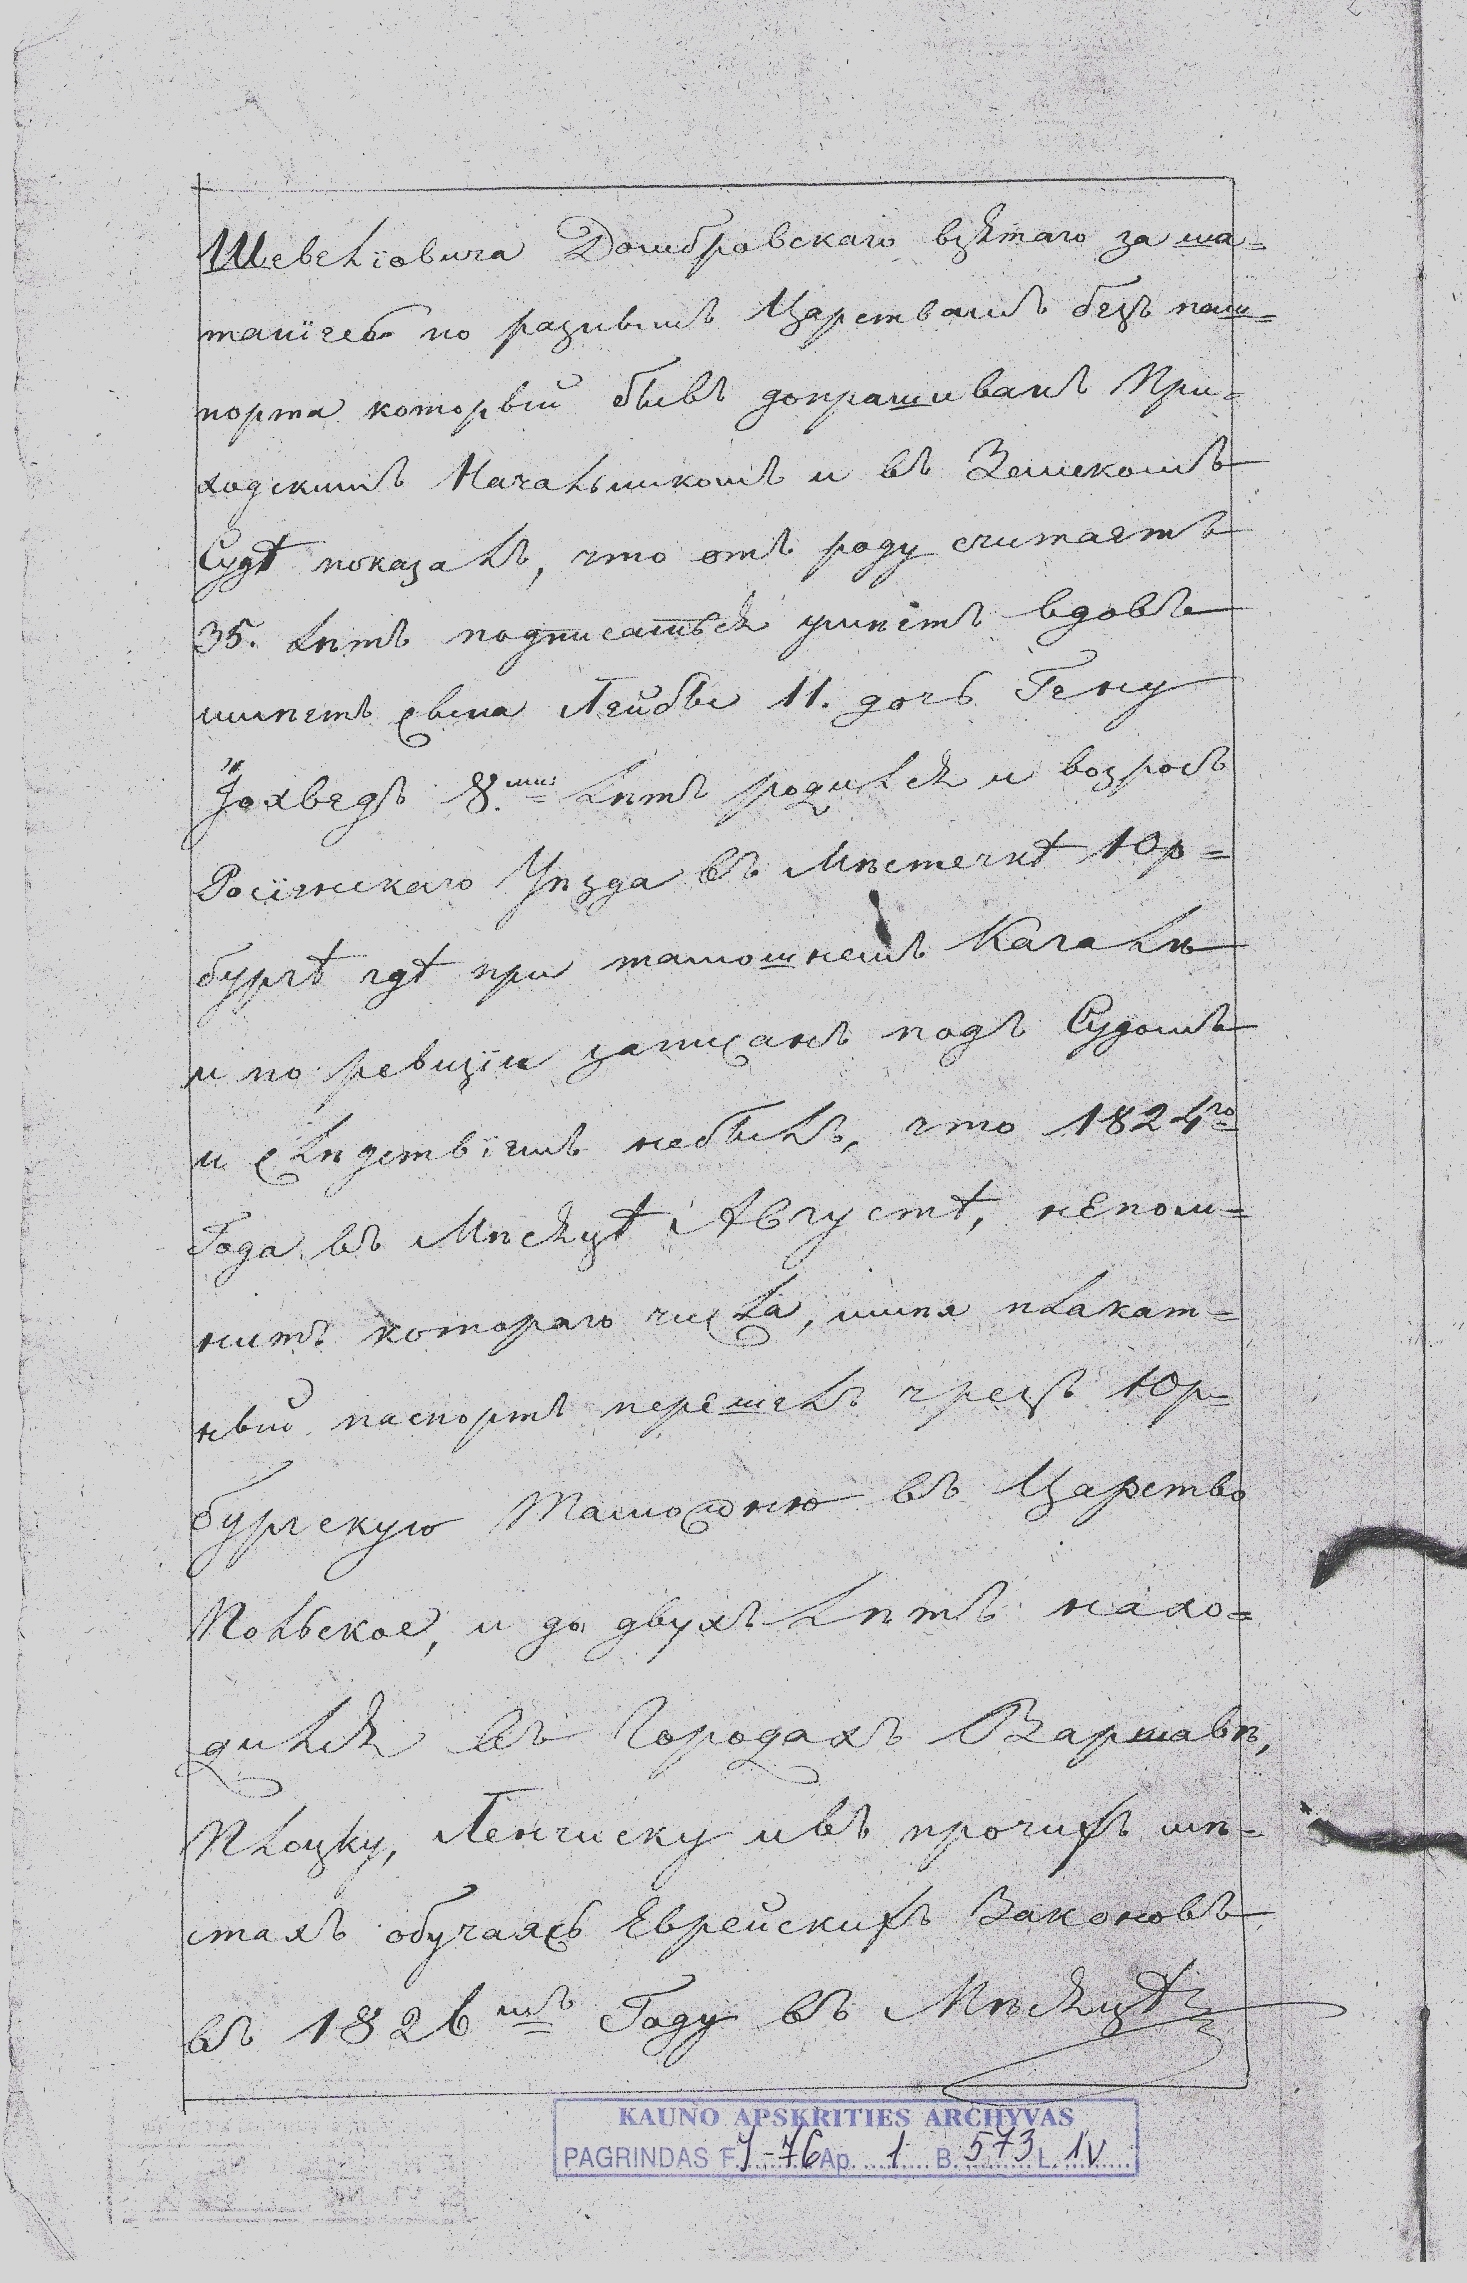 Шевеліовича Домбровскаго взятаго за ша-
таніеё по разнымъ Царствамъ безъ паш-
порта который бывъ допрашиванъ При-
ходскимъ Начальникомъ и въ Земскомъ
Судѣ показалъ, что отъ роду считаетъ
35. лѣтъ подписаться умѣетъ вдовъ
имѣетъ сына Лейбы 11. дочь Гену
Іохведъ 8.ми лѣтъ родился и возросъ
Росіенскаго Уѣзда въ Мѣстечкѣ Юр-
бургѣ гдѣ при тамошнемъ Кагалѣ
и по ревизіи записанъ подъ Судомъ
и слѣдствіемъ небылъ, что 1824го
Года въ Мѣсяцѣ Августѣ, непом-
нитъ котораго числа, имѣя плакат-
ный паспортъ перешелъ чрезъ Юр-
бургскую Таможню въ Царство
Польское, и до двухъ лѣтъ нахо-
дился въ Городахъ Варшавѣ,
Плоцку, Ленчиску ивъ прочихъ мѣ-
стахъ обучаясь Еврейскихъ Законовъ
въ 1826мъ Году въ Мѣсяцѣ
KAUNO APSKRITIES ARCHYVAS
PAGRINDAS F. J-76 Ap. 1 B. 573 L. 1v